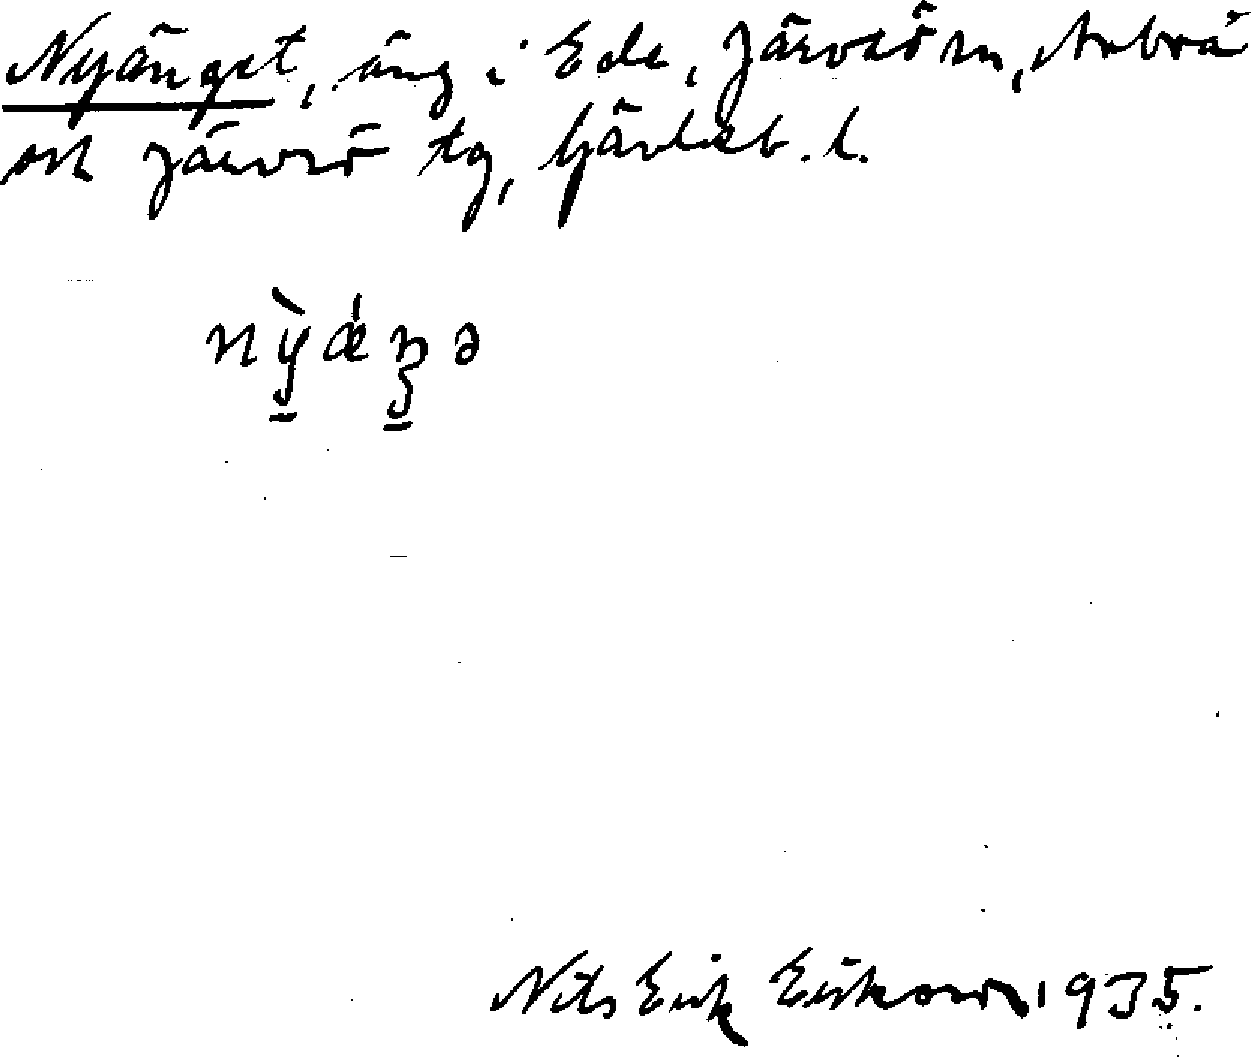 Nyänget, äng i Ede, Järvsö sn, Arbrå
och Järvsö tg, Gävleb. l.
nỳǽŋə
Nils Erik Erikson 1935.